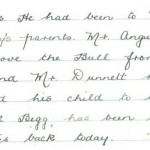 s He had been to
o's parents. Mr. Angu
ove the Bull from
nd Mr. Dunnett
d his child to
l Begg, has been
is back today.